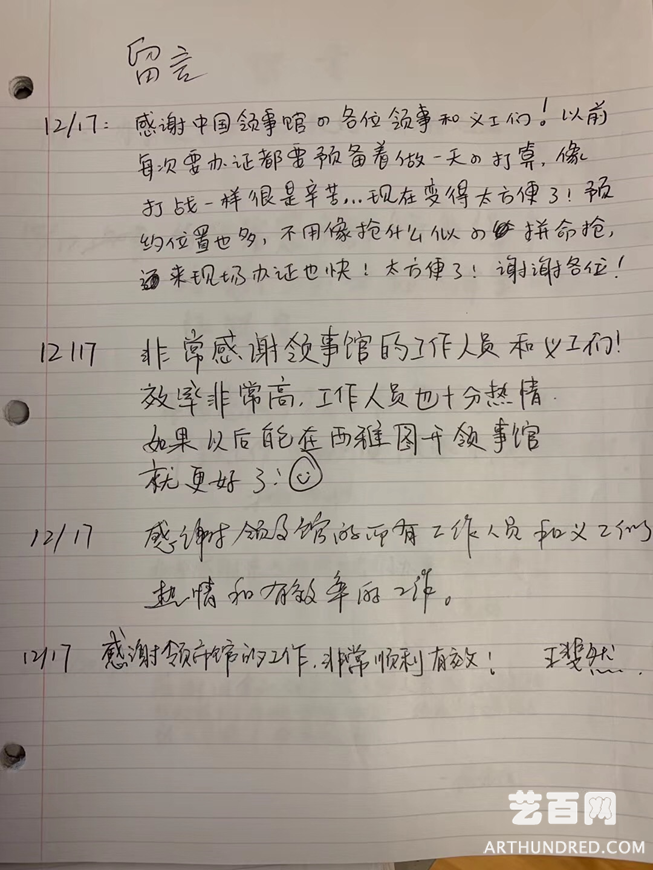 留言
12/17: 感谢中国领事馆的各位领事和义工们！以前
每次要办证都要预备着做一天的打算，像
打战一样很是辛苦...现在变得太方便了！预
约位置也多，不用像抢什么似的拼命抢，
来现场办证也快！太方便了！谢谢各位！
12/17 非常感谢领事馆的工作人员和义工们！
效率非常高，工作人员也十分热情.
如果以后能在西雅图开领事馆
就更好了！
12/17 感谢领事馆的所有工作人员和义工们
热情和有效率的工作。
12/17 感谢领事馆的工作，非常顺利有效！ 王斐然
艺百网
ARTHUNDRED.COM